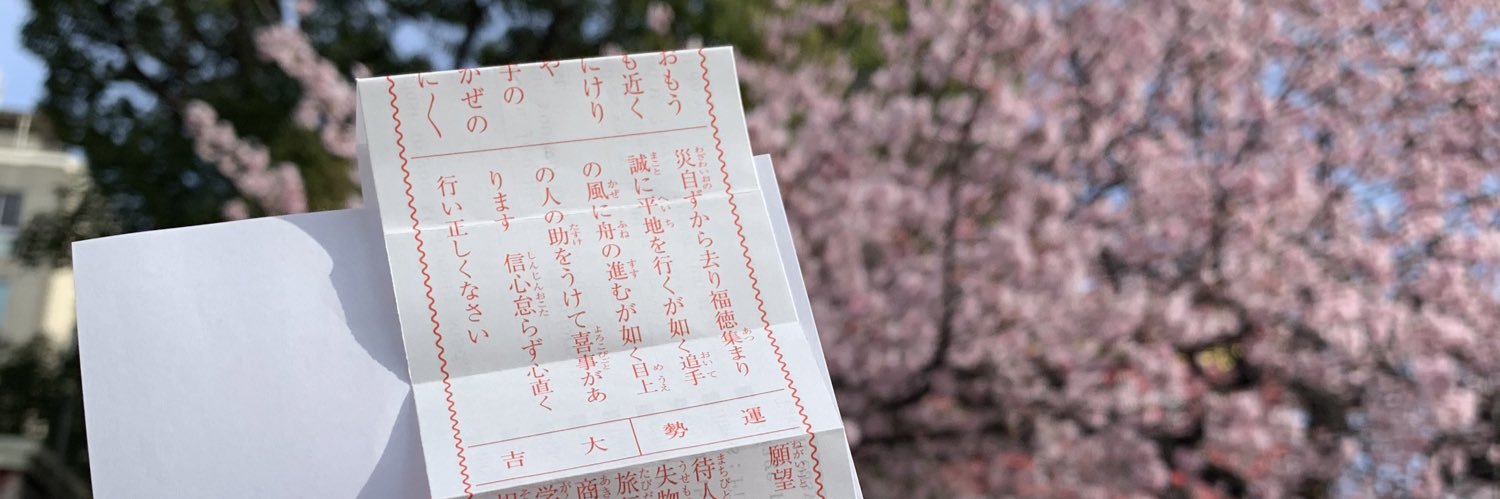 おもう
も近く
にけり
や
手の
かぜの
にく
災自ずから去り福徳集まり
誠に平地を行くが如く追手
の風に舟の進むが如く目上
の人の助をうけて喜事があ
ります 信心怠らず心直く
行い正しくなさい
運勢 大吉
願望
待人
失物
旅
商
学